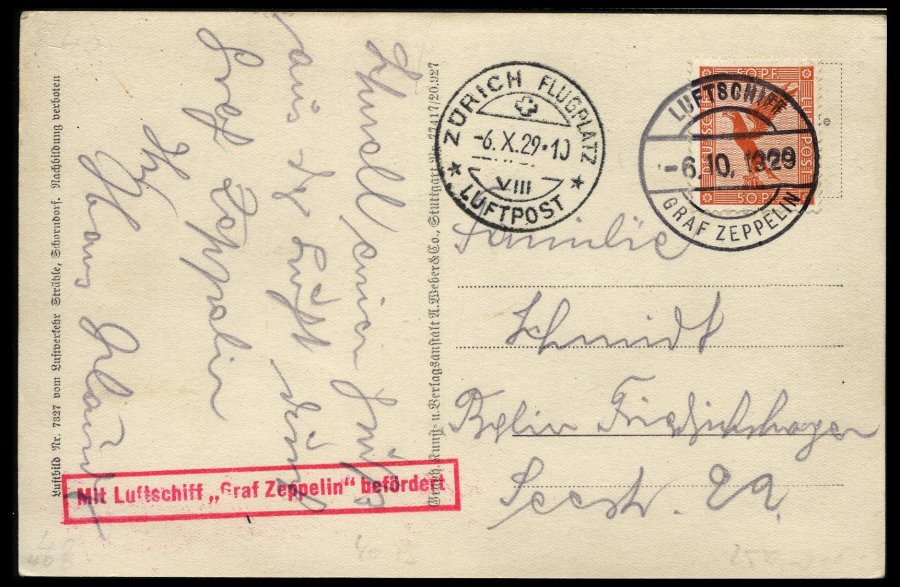 Luftbild Nr. 7327 vom Luftverkehr Strähle, Schorndorf. Nachbildung verboten
Schnell einen Gruß
aus der Luft
Graf Zeppelin
Hans
Graph. Kunst- u. Verlagsanstalt A. Weber & Co., Stuttgart Nr. 77417/20.927
ZÜRICH FLUGPLATZ
-6.X.29-10
VIII
LUFTPOST
50 PF
DEUTSCHE LUFTPOST
50 PF
LUFTSCHIFF
-6.10.1929
GRAF ZEPPELIN
Familie
Schmidt
Berlin Friedrichshagen
Seestr.
Mit Luftschiff „Graf Zeppelin" befördert